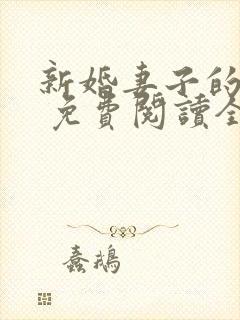 新婚妻子的
免費閱讀全
蠢鵝